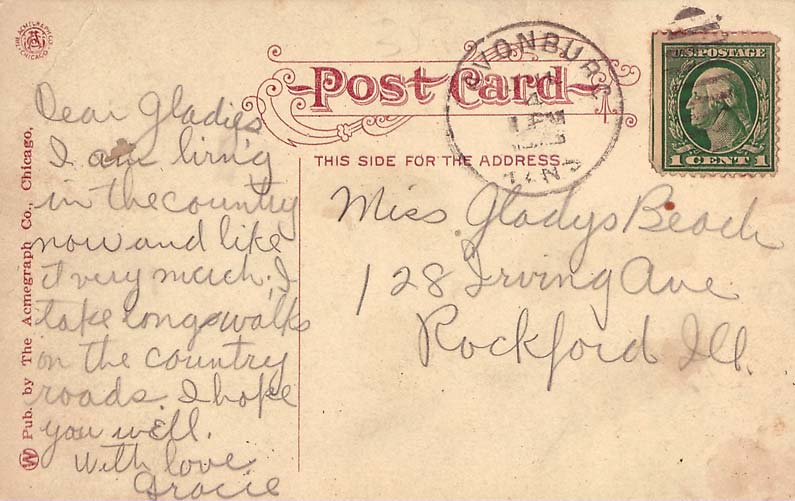 THE ACMEGRAPH CO.
CHICAGO
Post Card
THIS SIDE FOR THE ADDRESS.
U.S. POSTAGE
1 CENT 1
Pub. by The Acmegraph Co., Chicago.
W
Dear Gladies
I am living
in the country
now and like
it very much. I
take long walks
on the country
roads. I hope
you well.
With love
Gracie
Miss Gladys Beach
128 Irving Ave
Rockford Ill.